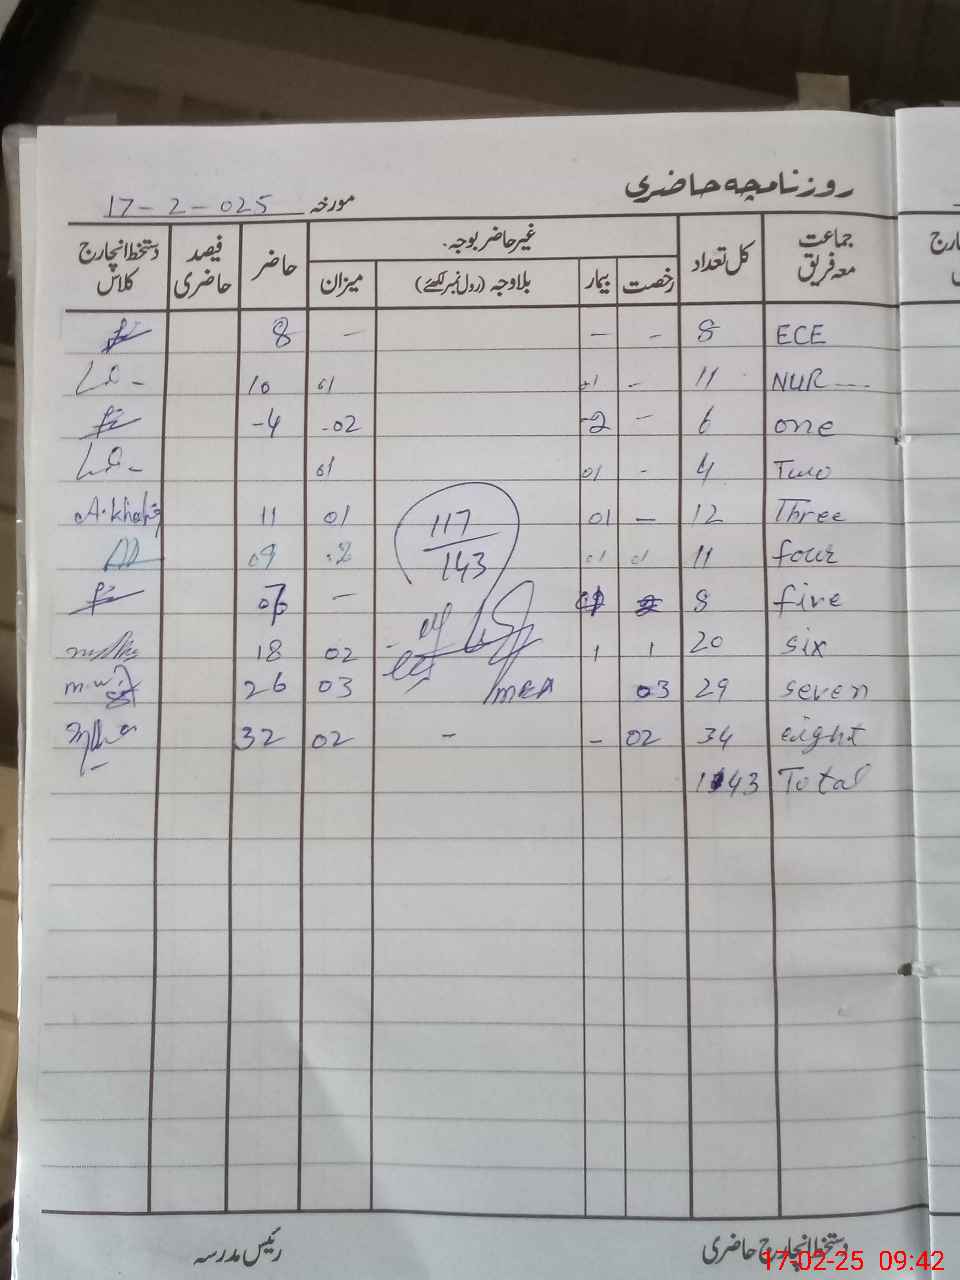 روزنامچہ حاضری
مورخہ 17-2-025
جماعت معہ فریق کل تعداد غیر حاضر بوجہ۔ حاضر فیصد حاضری دستخط انچارج کلاس
رخصت بیمار بلاوجہ (رول نمبر لکھئے) میزان
ECE 8 - - - 8
NUR 11 - 01 01 10
one 6 - -2 -02 -4
Two 4 - 01 01
Three 12 - 01 01 11 A.khaliq
four 11 09
five 8 -
six 20 1 1 02 18
seven 29 03 03 26
eight 34 02 - - 02 32
Total 143
117
143
MEA
دستخط انچارج حاضری رئیس مدرسہ
17-02-25 09:42